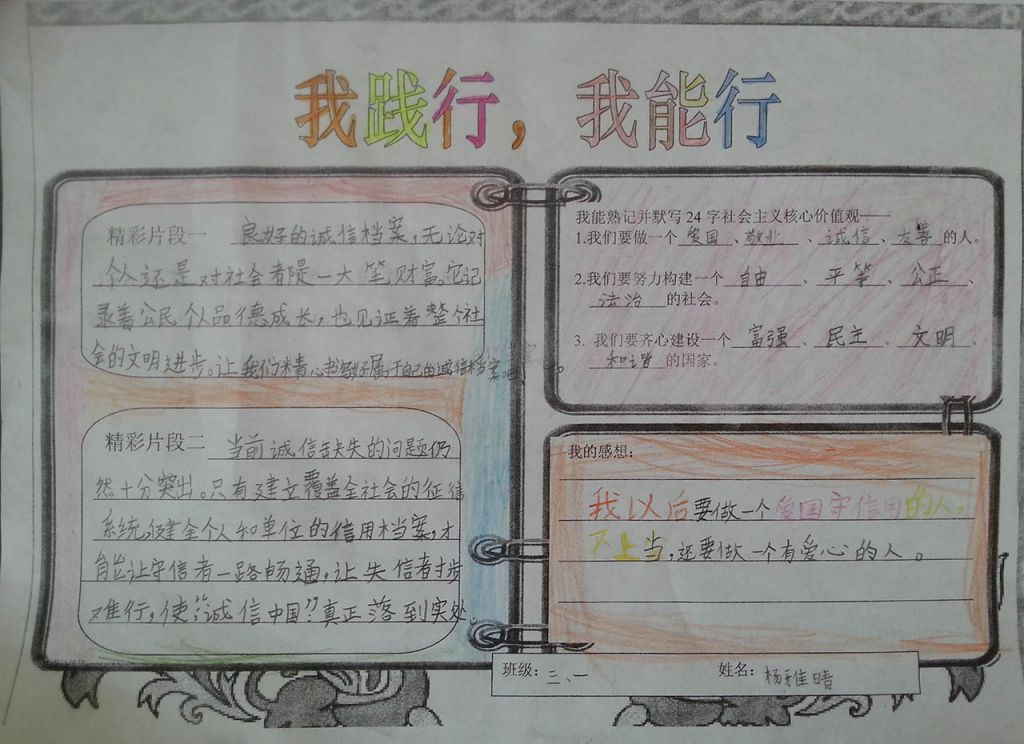 我践行，我能行
精彩片段一 良好的诚信档案,无论对
个人还是对社会都是一大笔财富。它记
录着公民个人品德成长,也见证着整个社
会的文明进步。让我们精心书写好属于自己的诚信档案吧。
精彩片段二 当前诚信缺失的问题仍
然十分突出。只有建立覆盖全社会的征信
系统,健全个人和单位的信用档案,才
能让守信者一路畅通,让失信者寸步
难行,使“诚信中国”真正落到实处。
我能熟记并默写 24 字社会主义核心价值观——
1.我们要做一个 爱国 、敬业 、诚信 、友善 的人。
2.我们要努力构建一个 自由 、平等 、公正 、
法治 的社会。
3. 我们要齐心建设一个 富强 、民主 、文明 、
和谐 的国家。
我的感想：
我以后要做一个爱国守信用的人。
不上当,还要做一个有爱心的人。
班级：三、一 姓名：杨雅晴